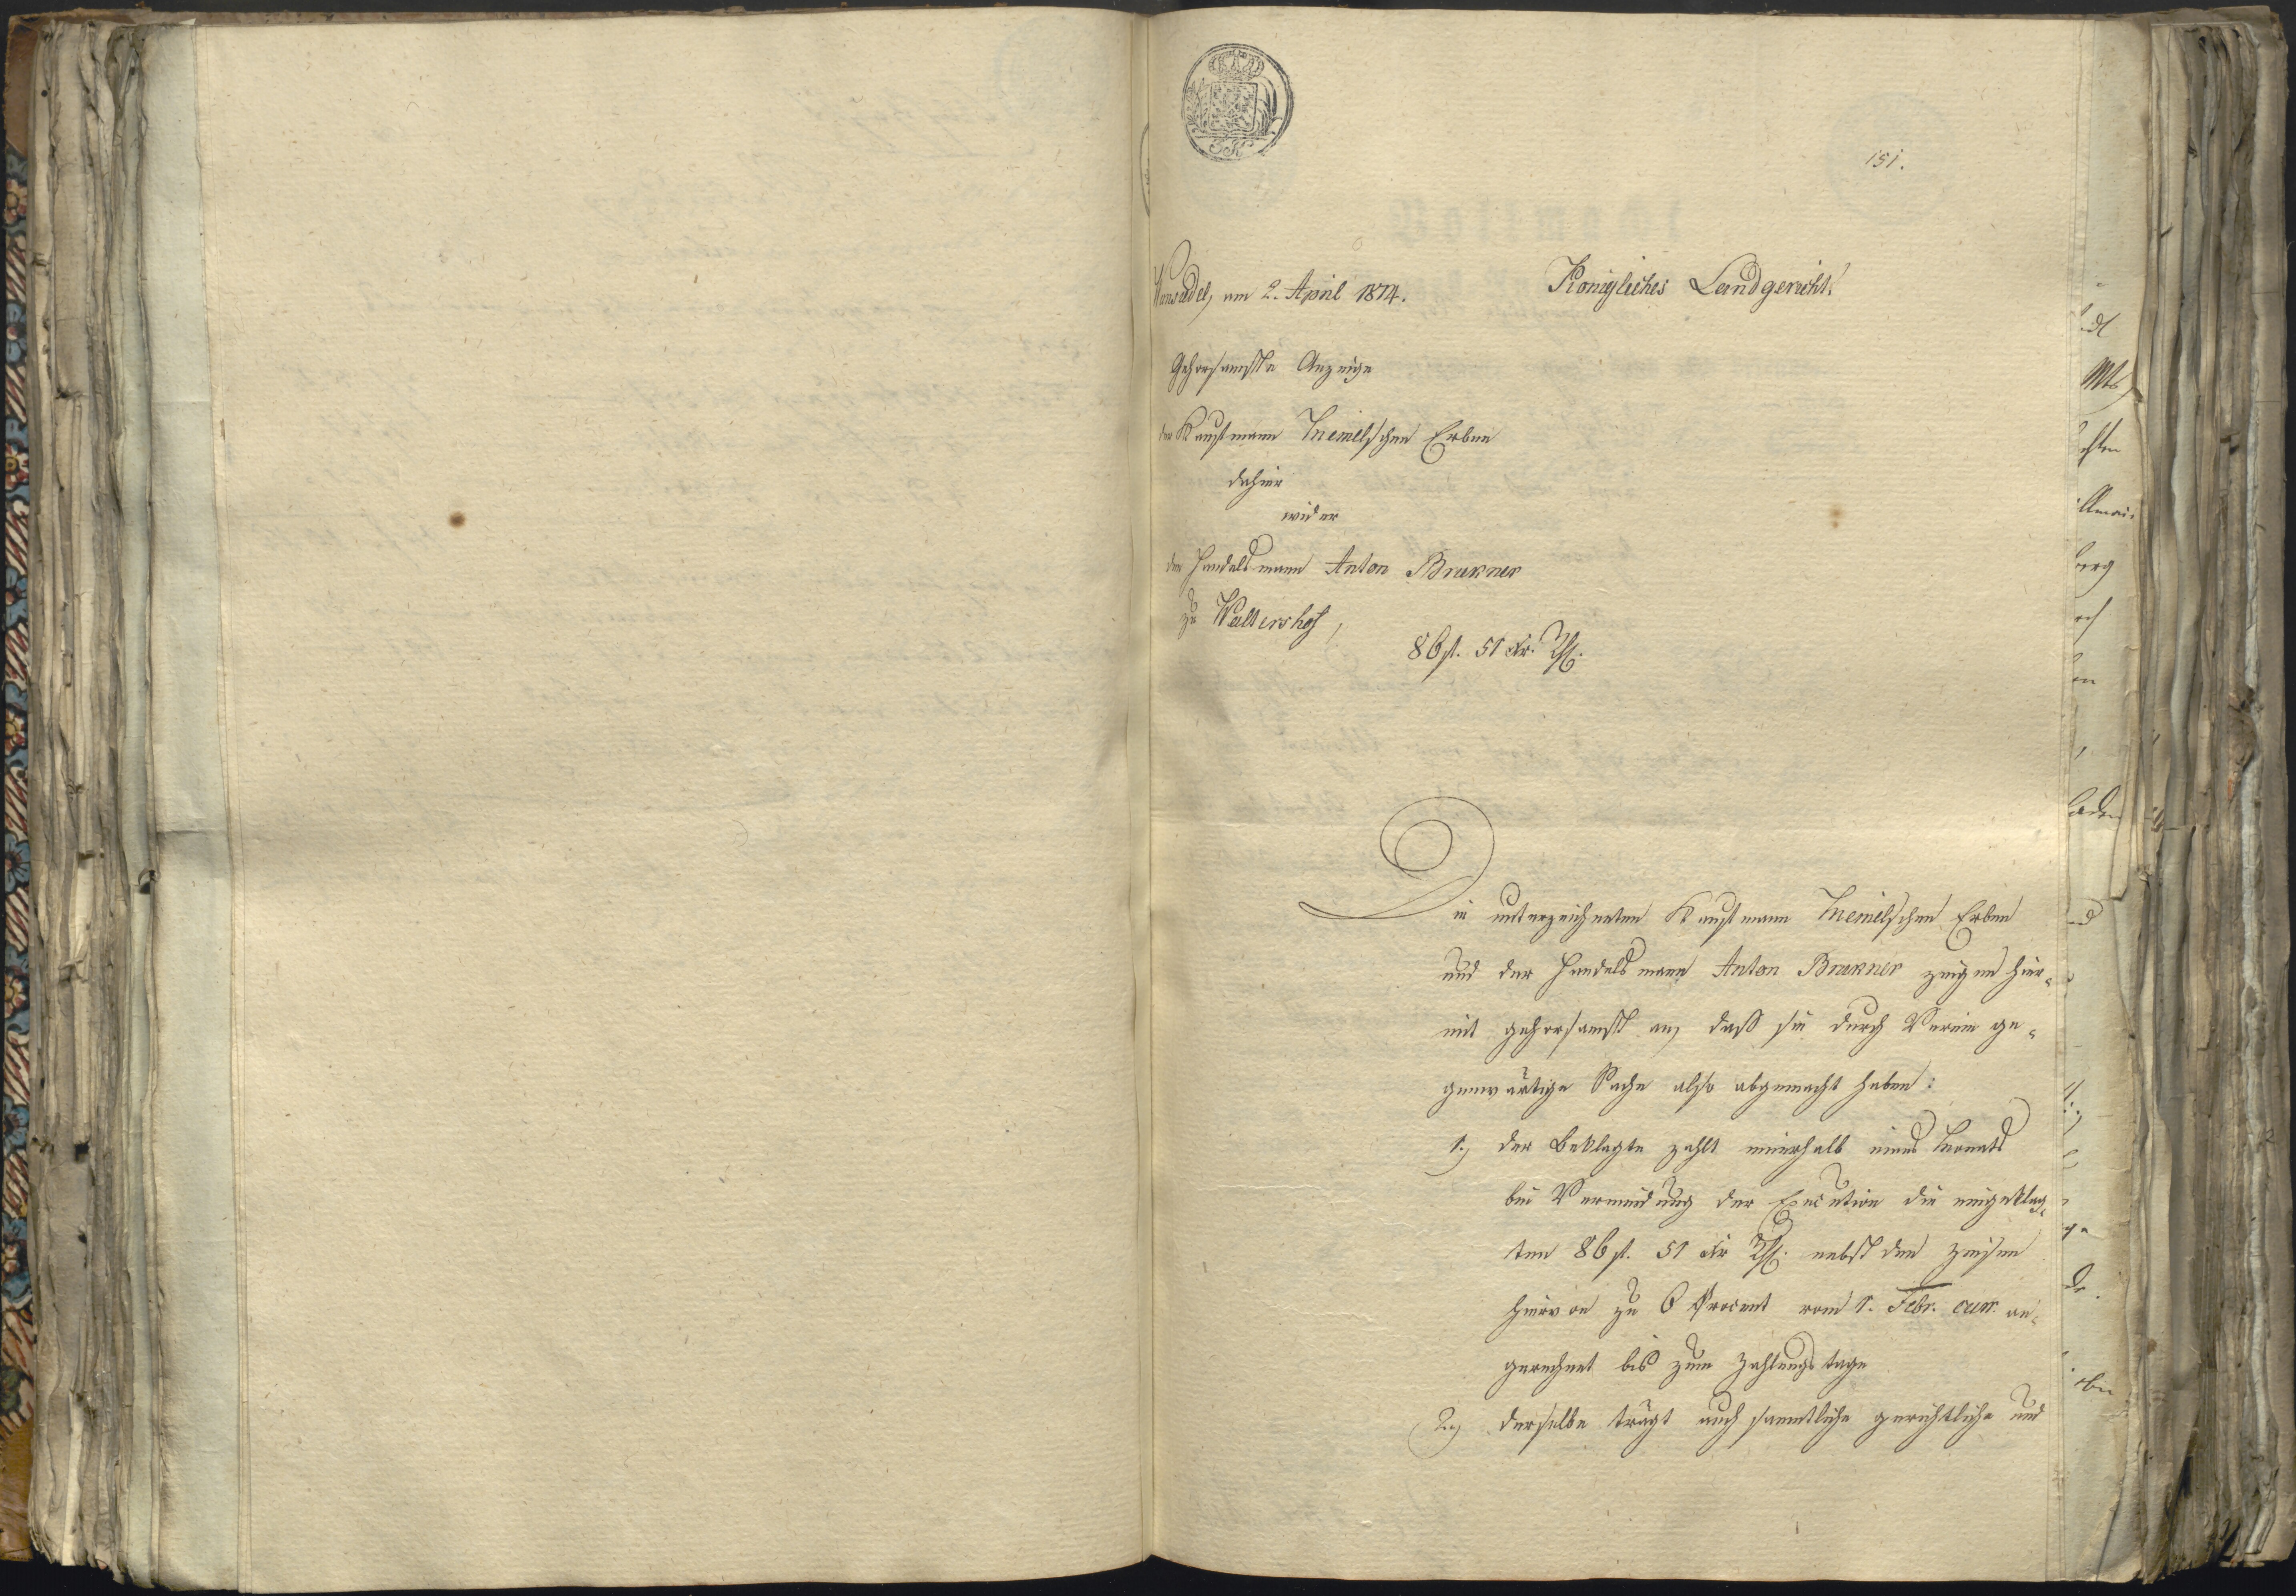 3 K
151.
Wunsiedel, am 2. April 1814.
Königliches Landgericht!
Gehorsamste Anzeige
der Kaufmann Themelschen Erben
dahier
wider
den Handelsmann Anton Brukner
zu Waltershof,
86 fl. 51 kr.
Die unterzeichneten Kaufmann Themelschen Erben
und der Handelsmann Anton Brukner zeigen hier-
mit gehorsamst an, daß sie durch Verein ge-
genwärtige Sache also abgemacht haben:
1.) der Beklagte zahlt innerhalb eines Monats
bei Vermeidung der Execution die eingeklag-
ten 86 fl. 51 kr nebst den Zinsen
hievon zu 6 Procent vom 1. Febr. curr. an-
gerechnet bis zum Zahlungstage
2.) derselbe trägt auch sammtliche gerichtliche und